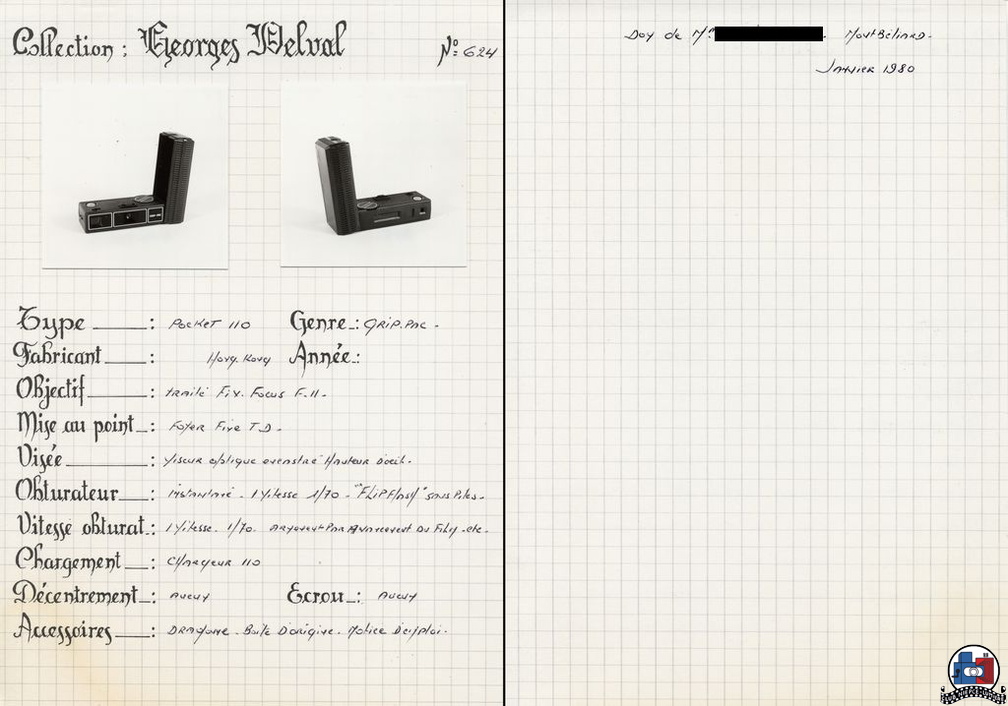 Collection : Georges Delval Nº 624
Type : Pocket 110 Genre : Grip. Pac.
Fabricant : Hong. Kong Année :
Objectif : traité Fix. Focus F. 11.
Mise au point : Foyer Fixe T.D.
Visée : Viseur optique Hauteur d'oeil.
Obturateur : instantané. 1 Vitesse 1/70 - "Flip Flash" sans Piles.
Vitesse obturat. : 1 Vitesse. 1/70. armement Par Avancement Du Film. etc.
Chargement : Chargeur 110
Décentrement : Aucun Ecrou : Aucun
Accessoires : Dragonne. Boîte D'origine. Notice D'emploi.
Don de Mr. Montbéliard.
Janvier 1980